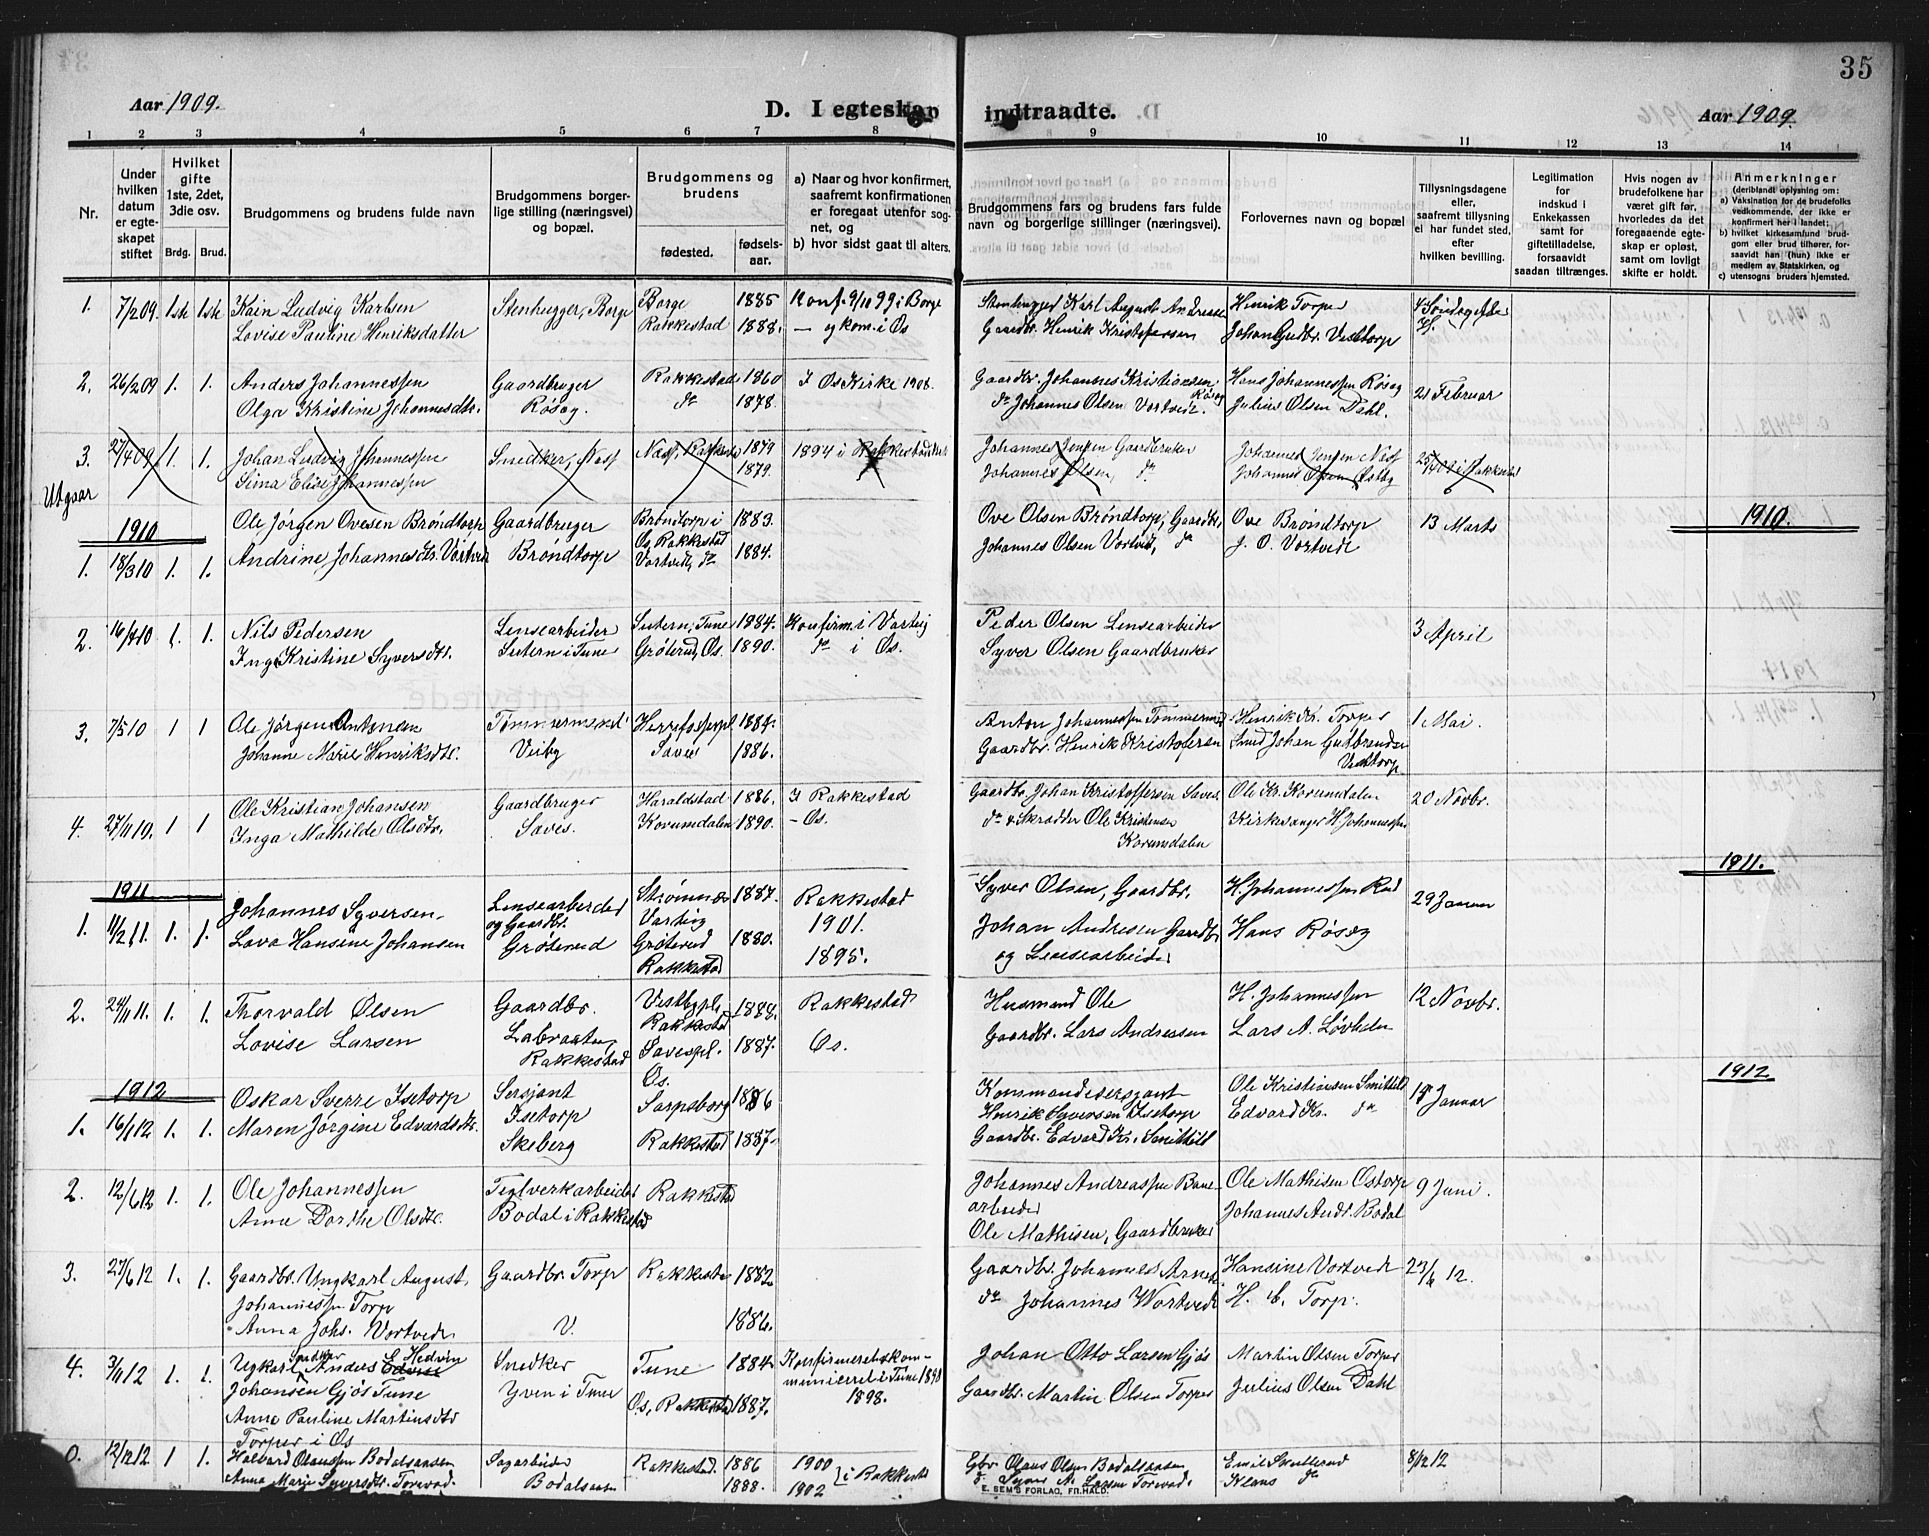 35
Aar 1909.
D. I egteskap indtraadte.
Aar 1909.
1 2 3 4 5 6 7 8 9 10 11 12 13 14
Nr.
Under hvilken datum er egteskapet stiftet
Hvilket gifte 1ste, 2det, 3die osv.
Brdg. Brud.
Brudgommens og brudens fulde navn
Brudgommens borgerlige stilling (næringsvei) og bopæl.
Brudgommens og brudens
fødested.
fødselsaar.
a) Naar og hvor konfirmert, saafremt konfirmationen er foregaat utenfor sognet, og
b) hvor sidst gaat til alters.
Brudgommens fars og brudens fars fulde navn og borgerlige stillinger (næringsvei).
Forlovernes navn og bopæl.
Tillysningsdagene eller, saafremt tillysning ei har fundet sted, efter hvilken bevilling.
Legitimation for indskud i Enkekassen samt for giftetilladelse, forsaavidt saadan tiltrænges.
Hvis nogen av brudefolkene har været gift før, hvorledes da det foregaaende egteskap er opløst, samt om lovligt skifte er holdt.
Anmerkninger (deriblandt oplysning om:
a) Vaksination for de brudefolks vedkommende, der ikke er konfirmert her i landet;
b) hvilket kirkesamfund brudgom eller brud tilhører, forsaavidt han (hun) ikke er medlem av Statskirken, og
c) utensogns bruders hjemsted.
1. 7/2 09. 1ste 1ste Kain Ludvig Karlsen Stenhugger, Borge Borge 1885 Konf. 9/11 99 i Borge Stenhugger Karl August Andreasen Henrik Torper
Lovise Pauline Henriksdatter Rakkestad 1888. — og kom. i Os Gaardbr. Henrik Kristofersen Johan Gudbr. Vestorp
2. 26/2 09 1. 1. Anders Johannessen Gaardbruger Rakkestad 1860 I Os Kirke 1908. Gaardbr. Johannes Kristiansen Røsæg Hans Johannessen Røsæg 21 Februar
Olga Kristine Johannesdtr. Røsæg. do 1878. do Johannes Olsen Vortvedt. Julius Olsen Dahl.
3. 27/4 09 1. 1. Johan Ludvig Johannessen Snedker, Næss Næss, Rakkestad 1879 1894 i Rakkestad Johannes Jensen Gaardbruker Johannes Jensen Næss
Utgaar Sina Elise Johannessen 1879. Johannes Olsen, do Johannes Olsen Østby
1910 1910.
1. 18/3 10 1. 1. Ole Jørgen Ovesen Brøndtorp Gaardbruger Brøndtorp i Os, Rakkestad 1883. Ove Olsen Brøndtorp, Gaardbr. Ove Brøndtorp 13 Marts
Andrine Johannesdtr. Vortvedt Brøndtorp Vortvedt, do 1884. Johannes Olsen Vortvedt, do J. O. Vortvedt
2. 16/4 10 1. 1. Nils Pedersen Lensearbeider Sutern, Tune 1884. Konfirm. i Varteig Peder Olsen Lensearbeider 3 April
Inga Kristine Syversdtr. Sutern i Tune Grøterud, Os. 1890. do i Os. Syver Olsen Gaardbruker
3. 7/5 10 1 1 Ole Jørgen Antonsen Tømmermand 1884. Anton Johannessen Tømmermand Henrik Kr. Torper 1 Mai
Johanne Marie Henriksdtr. Veiby 1886. Gaardbr. Henrik Kristofersen Smed Johan Gutbrandsen Vestorp
4. 27/11 10. 1 1 Ole Kristian Johansen Gaardbruger Haraldstad 1886. I Rakkestad Gaardbr. Johan Kristoffersen Saves. Ole Kr. Korumdalen 20 Novbr.
Inga Mathilde Olsdtr. Saves. Korumdalen 1890. – Os. do & Skrædder Ole Kristensen Korumdalen Kirkesanger H. Johannessen
1911 1911.
1. 11/2 11. 1. 1. Johannes Syversen Lensearbeider og Gaardbr. Strømnæs Varteig 1887. Rakkestad 1901. Syver Olsen, Gaardbr. H. Johannessen Rud 29 Januar
Lava Hansine Johansen Grøterud Grøterud Rakkestad 1880. 1895. Johan Andresen Gaardbr. og Lensearbeider Hans Røsæg
2. 24/11 11. 1. 1. Thorvald Olsen Gaardbr. Vestbypl. Rakkestad 1888. Rakkestad Husmand Ole H. Johannessen 12 Novbr.
Lovise Larsen Rakkestad Savespl. Os. 1887. Os. Gaardbr. Lars Andreassen Lars A. Løvholm
1912 1912
1. 16/1 12 1. 1. Oskar Sverre Isetorp Sersjant Isetorp Sarpsborg 1886 Kommandersersjant Henrik Syversen Isetorp Ole Kristiansen Smittild Januar
Maren Jørgine Edvardsdtr. Skeberg Rakkestad 1887. Gaardbr. Edvard Kr. Smittild Edvard Kr. do
2. 12/6 12 1. 1. Ole Johannessen Teglverkarbeider Rakkestad Johannes Andreassen Banearbeider Ole Mathisen Ostorp 9 Juni.
Anne Dorthe Olsdtr. Bodal i Rakkestad Ole Mathisen, Gaardbruker Johannes Andr. Bodal
3. 27/6 12 1. 1. Gaardbr. Ungkarl August Johannessen Torp Gaardbr. Torp Rakkestad 1882 Gaardbr. Johannes Arnes Hansine Vortvedt 23/6 12.
Anna Johs. Vortvedt V. 1886. do Johannes Wortvedt H. C. Torp.
4. 3/11 12 1. 1. Ugkarl Snedker Anders E. Hedvin Johansen Gjøs Tune Snedker Tune 1884. Konfirmeret & kommunicerret i Tune 1898 Johan Otto Larsen Gjøs Martin Olsen Torper
Anna Pauline Martinsdtr Torper i Os Yven i Tune Os, Rakkestad 1887. 1898. Gaardbr. Martin Olsen Torper Julius Olsen Dahl
12/12 12 1 1. Halvard Olaussen Bodalsaasen Sagarbeider Rakkestad. 1886 1900 i Rakkestad Gbr. Olaus Olsen Bodalsaasen Emil Skulterud 8/12 12
Anna Marie Syversdtr. Torevad. Bodalsaasen 1888. 1902 Syver A. Larsen Torevad. Klaus do
E. SEM'S FORLAG, FR.HALD.